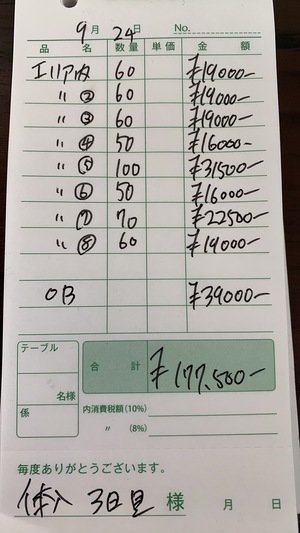 9月 24日 No.
品 名 数量 単価 金 額
エリア内 60 ¥19000-
〃 ② 60 ¥19000-
〃 ③ 60 ¥19000-
〃 ④ 50 ¥16000-
〃 ⑤ 100 ¥31500-
〃 ⑥ 50 ¥16000-
〃 ⑦ 70 ¥22500-
〃 ⑧ 60 ¥19000-
OB ¥39000-
テーブル
合 計 ¥177,500-
名様
係
内消費税額(10%)
〃 (8%)
毎度ありがとうございます。
体入 3日目 様 月 日